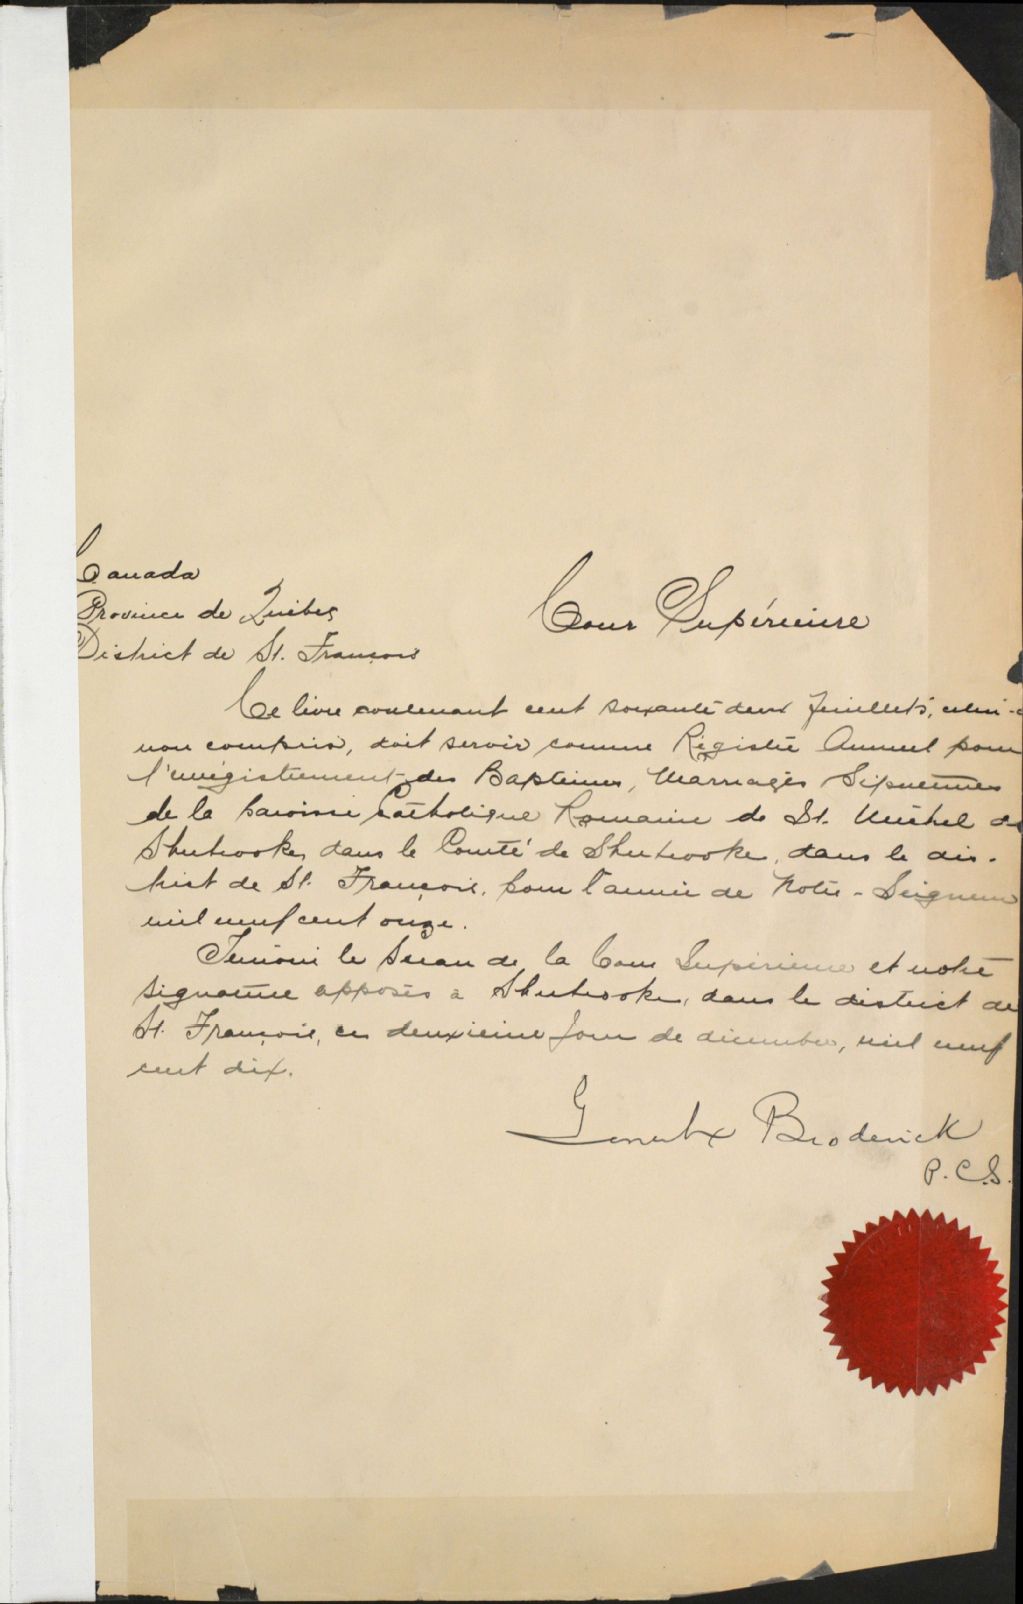 Canada
Province de Québec
District de St. François
Cour Supérieure
Ce livre contenant cent soixante deux feuillets, celui-ci
non compris, doit servir comme Régistre Annuel pour
l'enrégistrement des Baptêmes, Marriages Sépultures
de la paroisse Catholique Romaine de St. Michel de
Sherbrooke, dans le Comté de Sherbrooke, dans le dis-
trict de St. François, pour l'année de Notre-Seigneur
mil neuf cent onze.
Témoin le Sceau de la Cour Supérieure et notre
signature apposés à Sherbrooke, dans le district de
St. François, ce deuxième jour de décembre, mil neuf
cent dix.
Broderick
P.C.S.